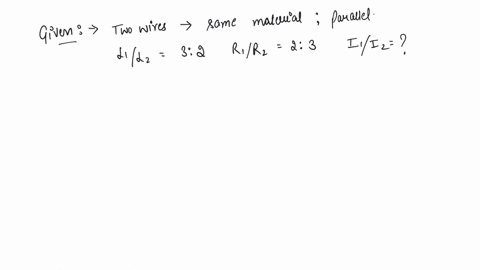 Given :→ Two wires → same material ; parallel.
L1/L2 = 3:2 R1/R2 = 2:3 I1/I2 = ?